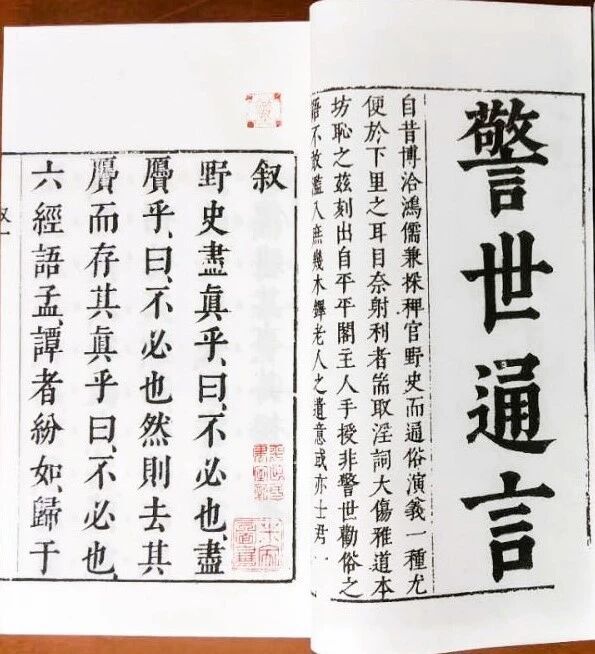 警世通言
自昔博洽鴻儒兼採稗官野史而通俗演義一種尤
便於下里之耳目奈射利者耑取淫詞大傷雅道本
坊恥之茲刻出自平平閣主人手授非警世勸俗之
語不敢濫入庶幾木鐸老人之遺意或亦士君
叙
野史盡眞乎、曰、不必也、盡
贗乎、曰、不必也然則去其
贗而存其眞乎、曰、不必也
六經語孟、譚者紛如、歸于